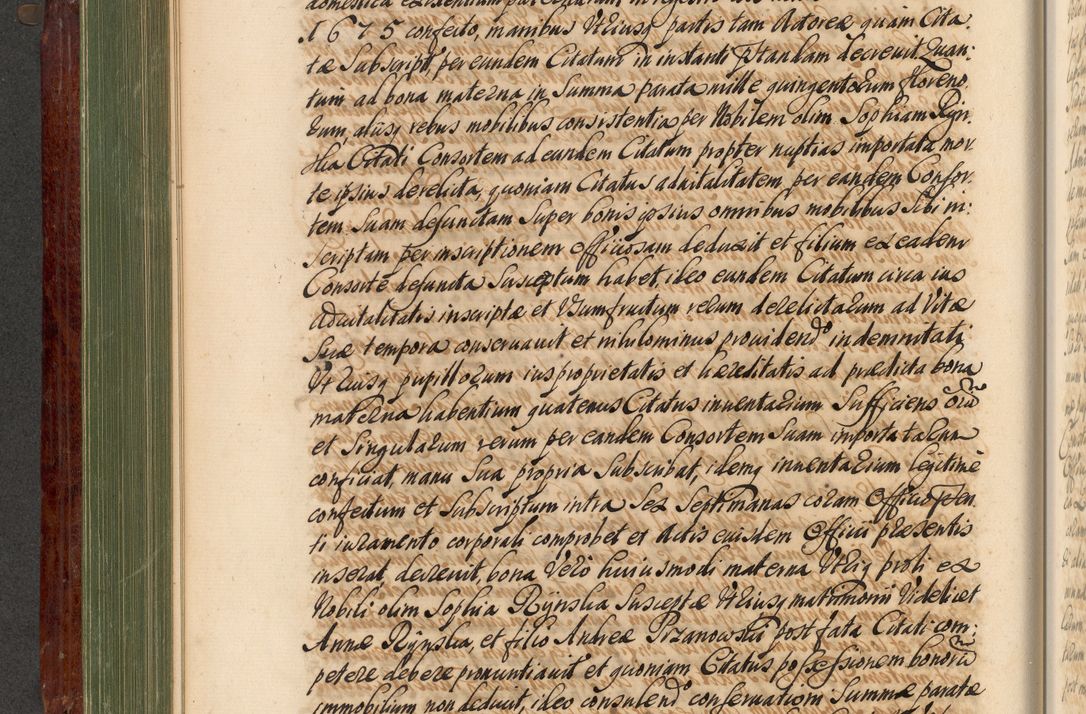 domestica existentium per
1675 confecto, manibus Utriusq partis tam Actoreæ quam Cita
tæ Subscript, per eundem Citatum in instanti decreuit, Quan:
tum ad bona materna in Summa parata mille quingentorum floreno
rum, alÿsq rebus mobilibus consistentia per Nobilem olim Sophiam Ryn
Citati Consortem ad eundem Citatum propter nuptias importata mor
te ipsius derelicta, quoniam Citatus aduitalitatem per eandem Consor:
tem Suam defunctam Super bonis ipsius omnibus mobilibus Sibi in:
scriptam per inscriptionem officiosam deduxit et filium ex eadem
Consorte defuncta Susceptum habet, ideo eundem Citatum circa ius
aduitalitatis inscriptæ et Usumfructum rerum derelictarum ad Vitæ
Suæ tempora conseruauit et nihilominus prouidend indemnitati
Utriusq pupillorum ius proprietatis et hæreditatis ad prædicta bona
materna habentium quatenus Citatus inuentarium Sufficiens
et Singularum rerum per eandem Consortem Suam importatarum
conficiat, manu Sua propria Subscribat, idemq inuentarium legitimè
confectum et Subscriptum intra Sex Septimanas coram Officio
ti iuramento corporali comprobet et Actis eiusdem Officii præsentis
inserat, decreuit, bona Verò huiusmodi materna Utriq proli ex
Nobili olim Sophia Rÿnska Susceptæ Utriusq matrimonii Videlicet
Annæ Rÿnska, et filio Andreæ Przanowski post fata Citati com:
petere debere pronuntiauit et quoniam Citatus possessionem bonorū
immobilium non deduxit, ideo consulend conseruationi Summæ paratæ